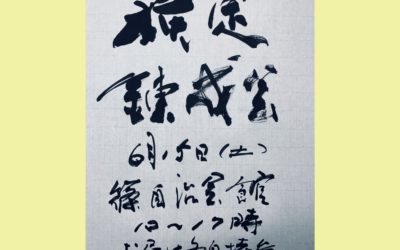 検定
錬成会
6月15日(土)
篠自治会館
10〜17時